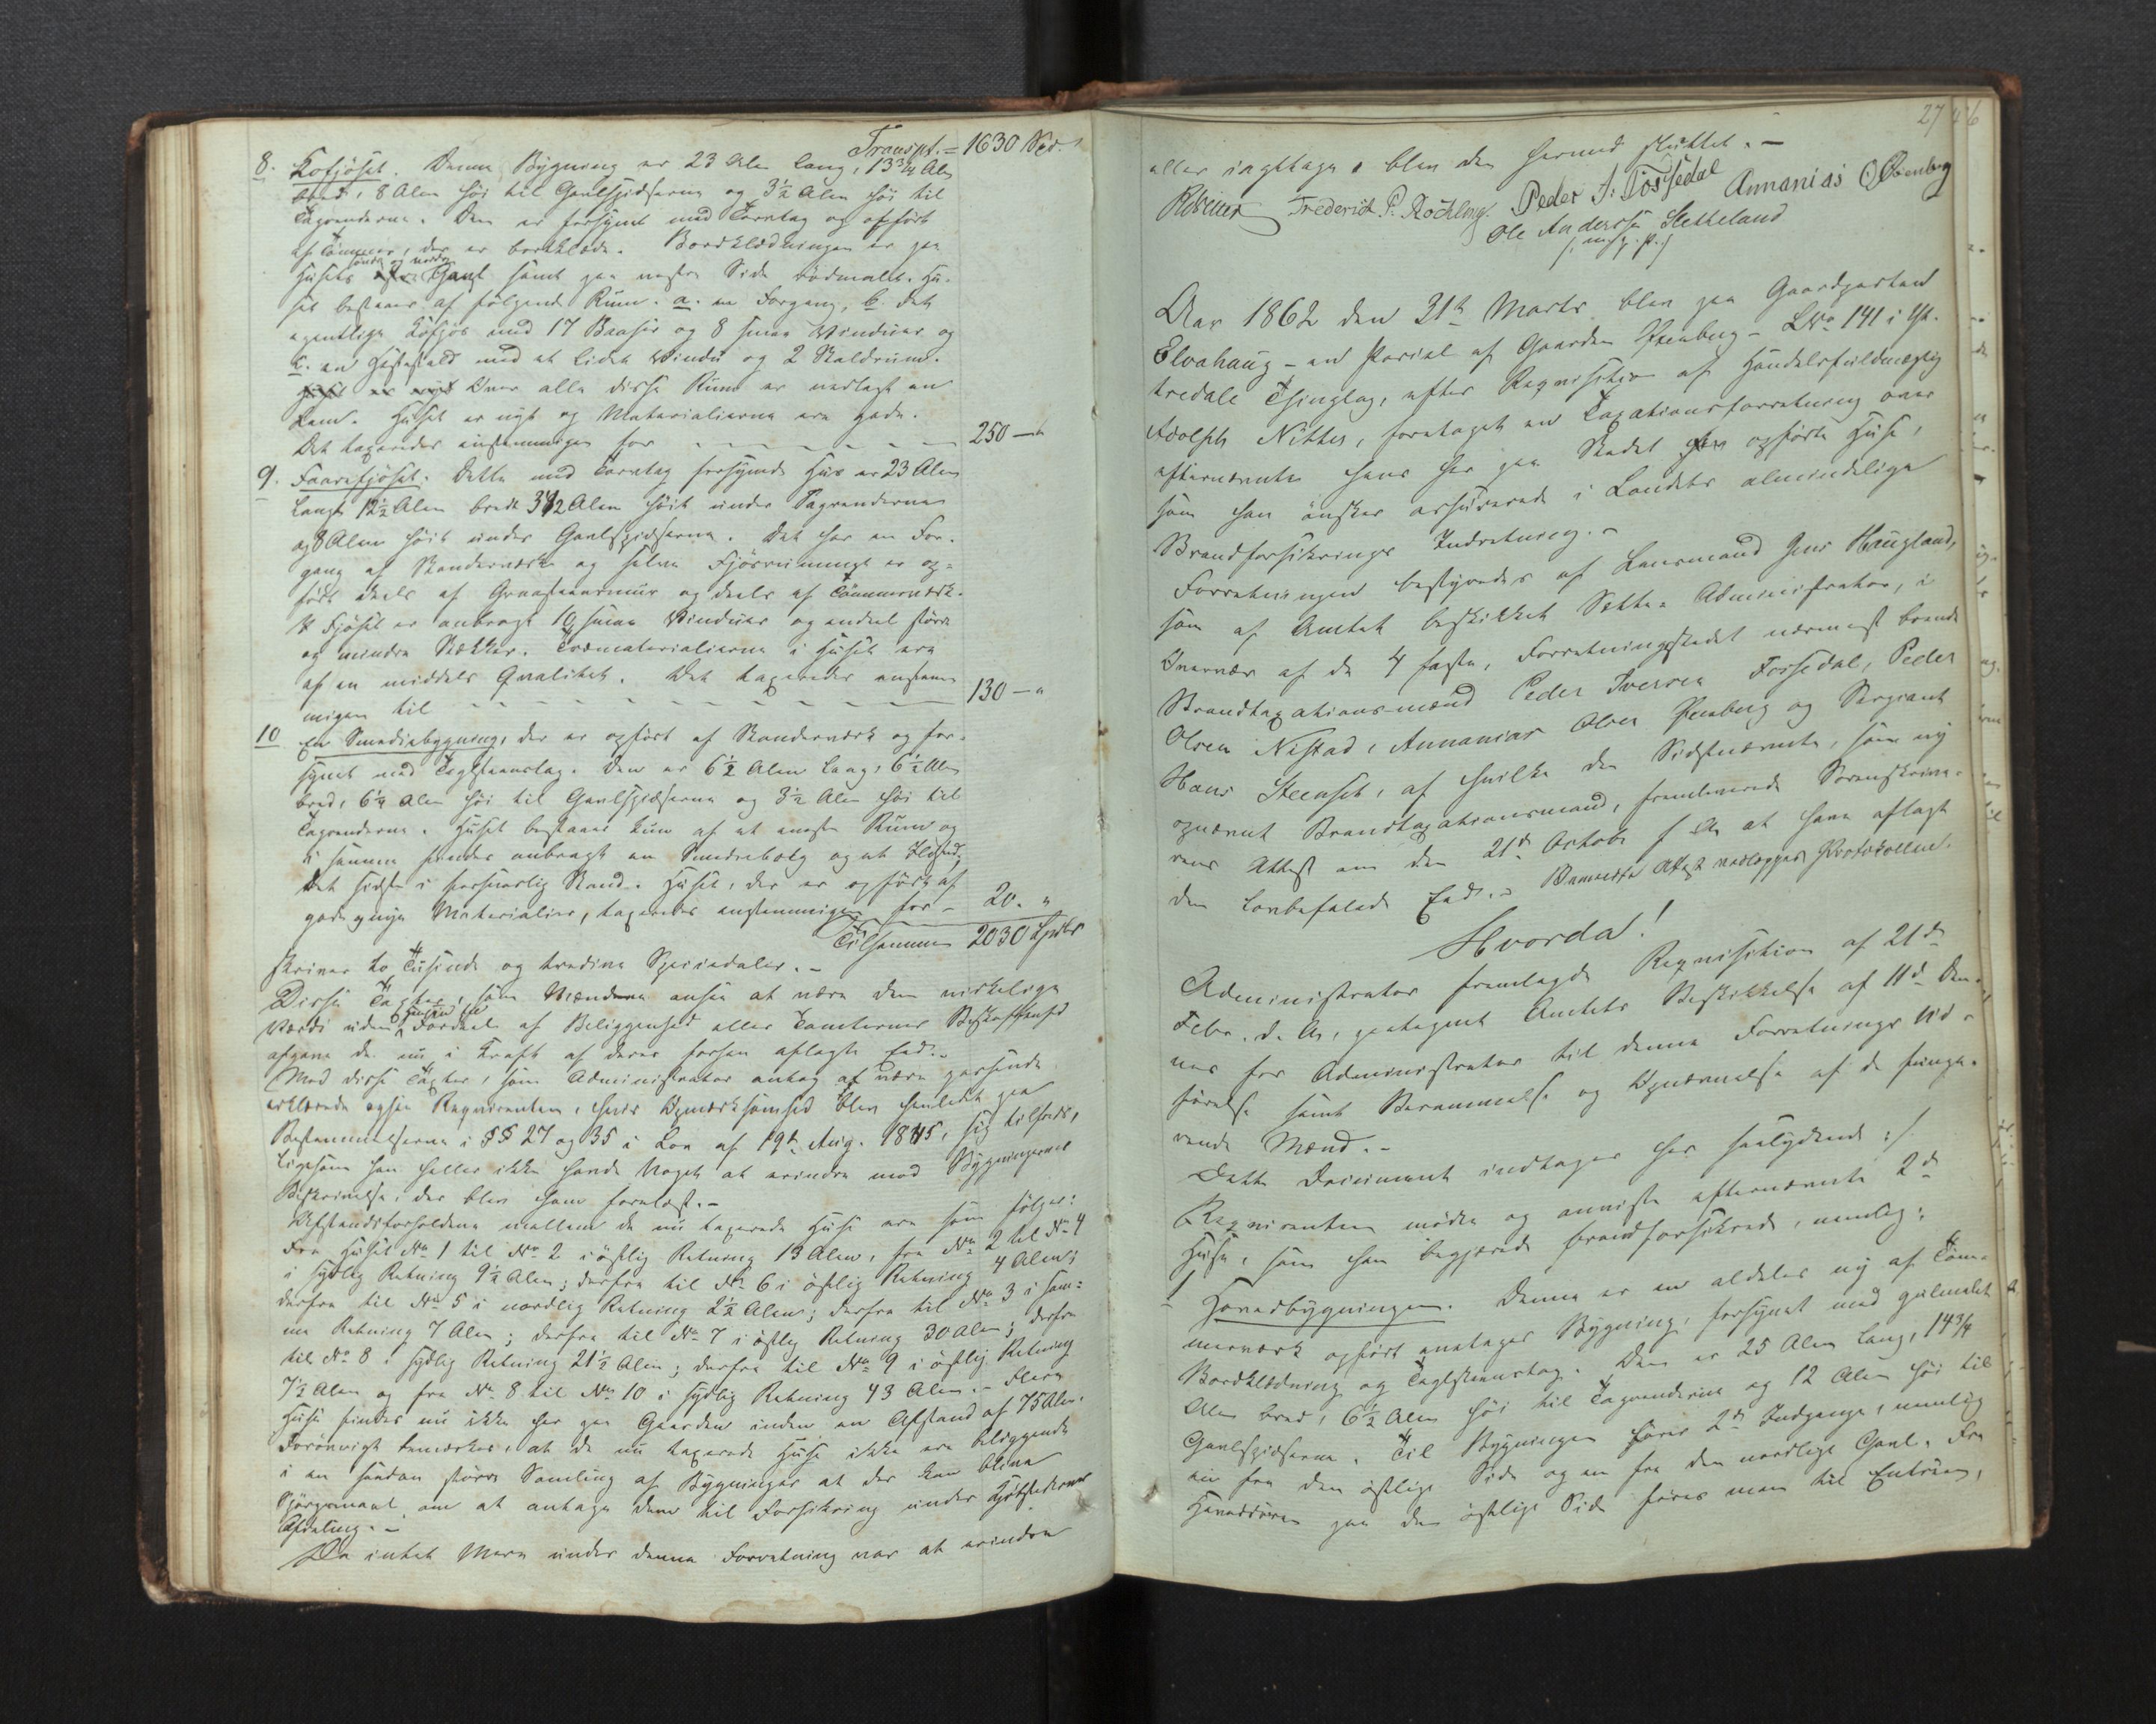 Transpt. = 1630 Spd.
8. Kofjøset. Denne Bygning er 23 Alen lang, 13 3/4 Alen
bred, 8 Alen høi til Gavlspidserne og 3 1/2 Alen høi til
Tagrenderne. Den er forsynet med Torvtag og opført
af Tømmer, der er bordklædt. Bordklædningen er paa
søndre og nordre
Husets Gavl samt paa vestre Side rødmalet. Hu-
set bestaaer af følgende Rum: a. en Forgang, b. det
egentlige Kofjøs med 17 Baaser og 8 smaa Vinduer og
c. en Hestestald med et lidet Vindu og 2 Staldrum.
Over alle disse Rum er nedlagt en
Lem. Huset er nyt og Materialierne ere gode.
Det taxeredes enstemmigen for - - - - 250 — "
9. Faarefjøset. Dette med Torvtag forsynede Hus er 23 Alen
langt 12 1/2 Alen bredt 3 1/2 Alen høit under Tagrenderne
og 8 Alen høit under Gavlspidserne. Det har en For-
gang af Standerværk og selve Fjøsrummet er op-
ført deels af Graasteensmuur og deels af Tømmerværk.
I Fjøset er anbragt 10 smaa Vinduer og endeel større
og mindre Stækker. Træmaterialierne i Huset ere
af en middels Qvalitet. Det taxeredes enstem-
migen til - - - - 130 — "
10 En Smediebygning, der er opført af Standerværk og for-
synet med Teglsteenstag. Den er 6 1/2 Alen lang, 6 1/2 Alen
bred, 6 1/4 Alen høi til Gavlspidserne og 3 1/2 Alen høi til
Tagrenderne. Huset bestaaer kun af et eneste Rum og
i samme findes anbragt en Smedrebælg og et Ildsted,
det sidste i forsvarlig Stand. Huset, der er opført af
gode og nye Materialier, taxeredes enstemmigen for - 20. "
Tilsammen 2030 Spdlr
skriver to Tusinde og tredive Speciedaler. -
Disse Taxter, som Mændene ansee at være den virkelige
Hensyn til
Værdi uden Fordeel af Beliggenhed eller Tomternes Beskaffenhed
afgave de nu i Kraft af deres forhen aflagte Eed. -
Med disse Taxter, som Administrator antog at være passende
erklærede ogsaa Reqvirenten, hvis Opmærksomhed blev henledet paa
Bestemmelserne i §§ 27 og 35 i Lov af 19de Aug. 1845, sig tilfreds,
ligesom han heller ikke havde Noget at erindre mod Bygningernes
Beskrivelse, der blev ham forelæst. -
Afstandsforholdene mellem de nu taxerede Huse ere som følger:
Fra Huset No 1 til No 2 i østlig Retning 13 Alen, fra No 2 til No 4
i sydlig Retning 9 1/2 Alen; derfra til No 6 i østlig Retning 4 Alen;
derfra til No 5 i nordlig Retning 2 1/2 Alen; derfra til No 3 i sam-
me Retning 7 Alen; derfra til No 7 i østlig Retning 30 Alen; derfra
til No 8 i sydlig Retning 21 1/2 Alen; derfra til No 9 i østlig Retning
7 1/2 Alen og fra No 8 til No 10 i sydlig Retning 43 Alen. - Flere
Huse findes nu ikke her paa Gaarden inden en Afstand af 75 Alen.
Forøvrigt bemærkes, at de nu taxerede Huse ikke ere beliggende
i en saadan større Samling af Bygninger at der kan blive
Spørgsmaal om at antage dem til Forsikring under Kjøbstædernes
Afdeling. -
Da intet Mere under denne Forretning var at erindre
27
eller iagttage, blev den hermed sluttet. -
Frederich P. Rochling. Peder I. Fossedal Annanias O Øvenberg
Ole Anderssøn Sletteland
/: m. p. P. :/
Aar 1862 den 31te Marts blev paa Gaardparten
Elvahaug - en Parcel af Gaarden Øvenberg - LNo 141 i Yt-
tredale Thinglag, efter Reqvisition af Handelsfuldmægtig
Adolph Nitter, foretaget en Taxationsforretning over
efternævnte hans her paa Stedet opførte Huse,
som han ønsker assurerede i Landets almindelige
Brandforsikrings Indretning. -
Forretningen bestyredes af Lensmand Jens Haugland,
som af Amtet beskikket Sætte-Administrator, i
Overvær af de 4 faste, Forretningsstedet nærmest boende
Brandtaxationsmænd Peder Iversen Fossedal, Peder
Olsen Nistad, Annanias Olsen Øvenberg og Sergeant
Hans Steenset, af hvilke den Sidstnævnte, som ny
opnævnt Brandtaxationsmand, fremleverede Sorenskrive-
rens Attest om den 21de Octobr f. A. at have aflagt
den lovbefalede Eed. - Bemeldte Attest vedlægges Protokollen.
Hvorda!
Administrator fremlagde Reqvisition af 21de
Febr. d. A., paategnet Amtets Beskikkelse af 11te Den-
nes for Administrator til denne Forretnings Ud-
førelse samt Berammelse og Opnævnelse af de funge-
rende Mænd. -
Dette Document indtages her saalydende :/:
Reqvirenten mødte og anviste efternævnte 2de
Huse, som han begjærede brandforsikrede, nemlig:
1 Hovedbygningen. Denne er en aldeles ny af Tøm-
merværk opført enetages Bygning, forsynet med gulmalet
Bordklædning og Teglsteenstag. Den er 25 Alen lang, 14 3/4
Alen bred, 6 1/2 Alen høi til Tagrenderne og 12 Alen høi til
Gavlspidserne. Til Bygningen fører 2de Indgange, nemlig
en fra den østlige Side og en fra den nordlige Gavl. Fra
Hoveddøren paa den østlige Side føres man til Entréen,